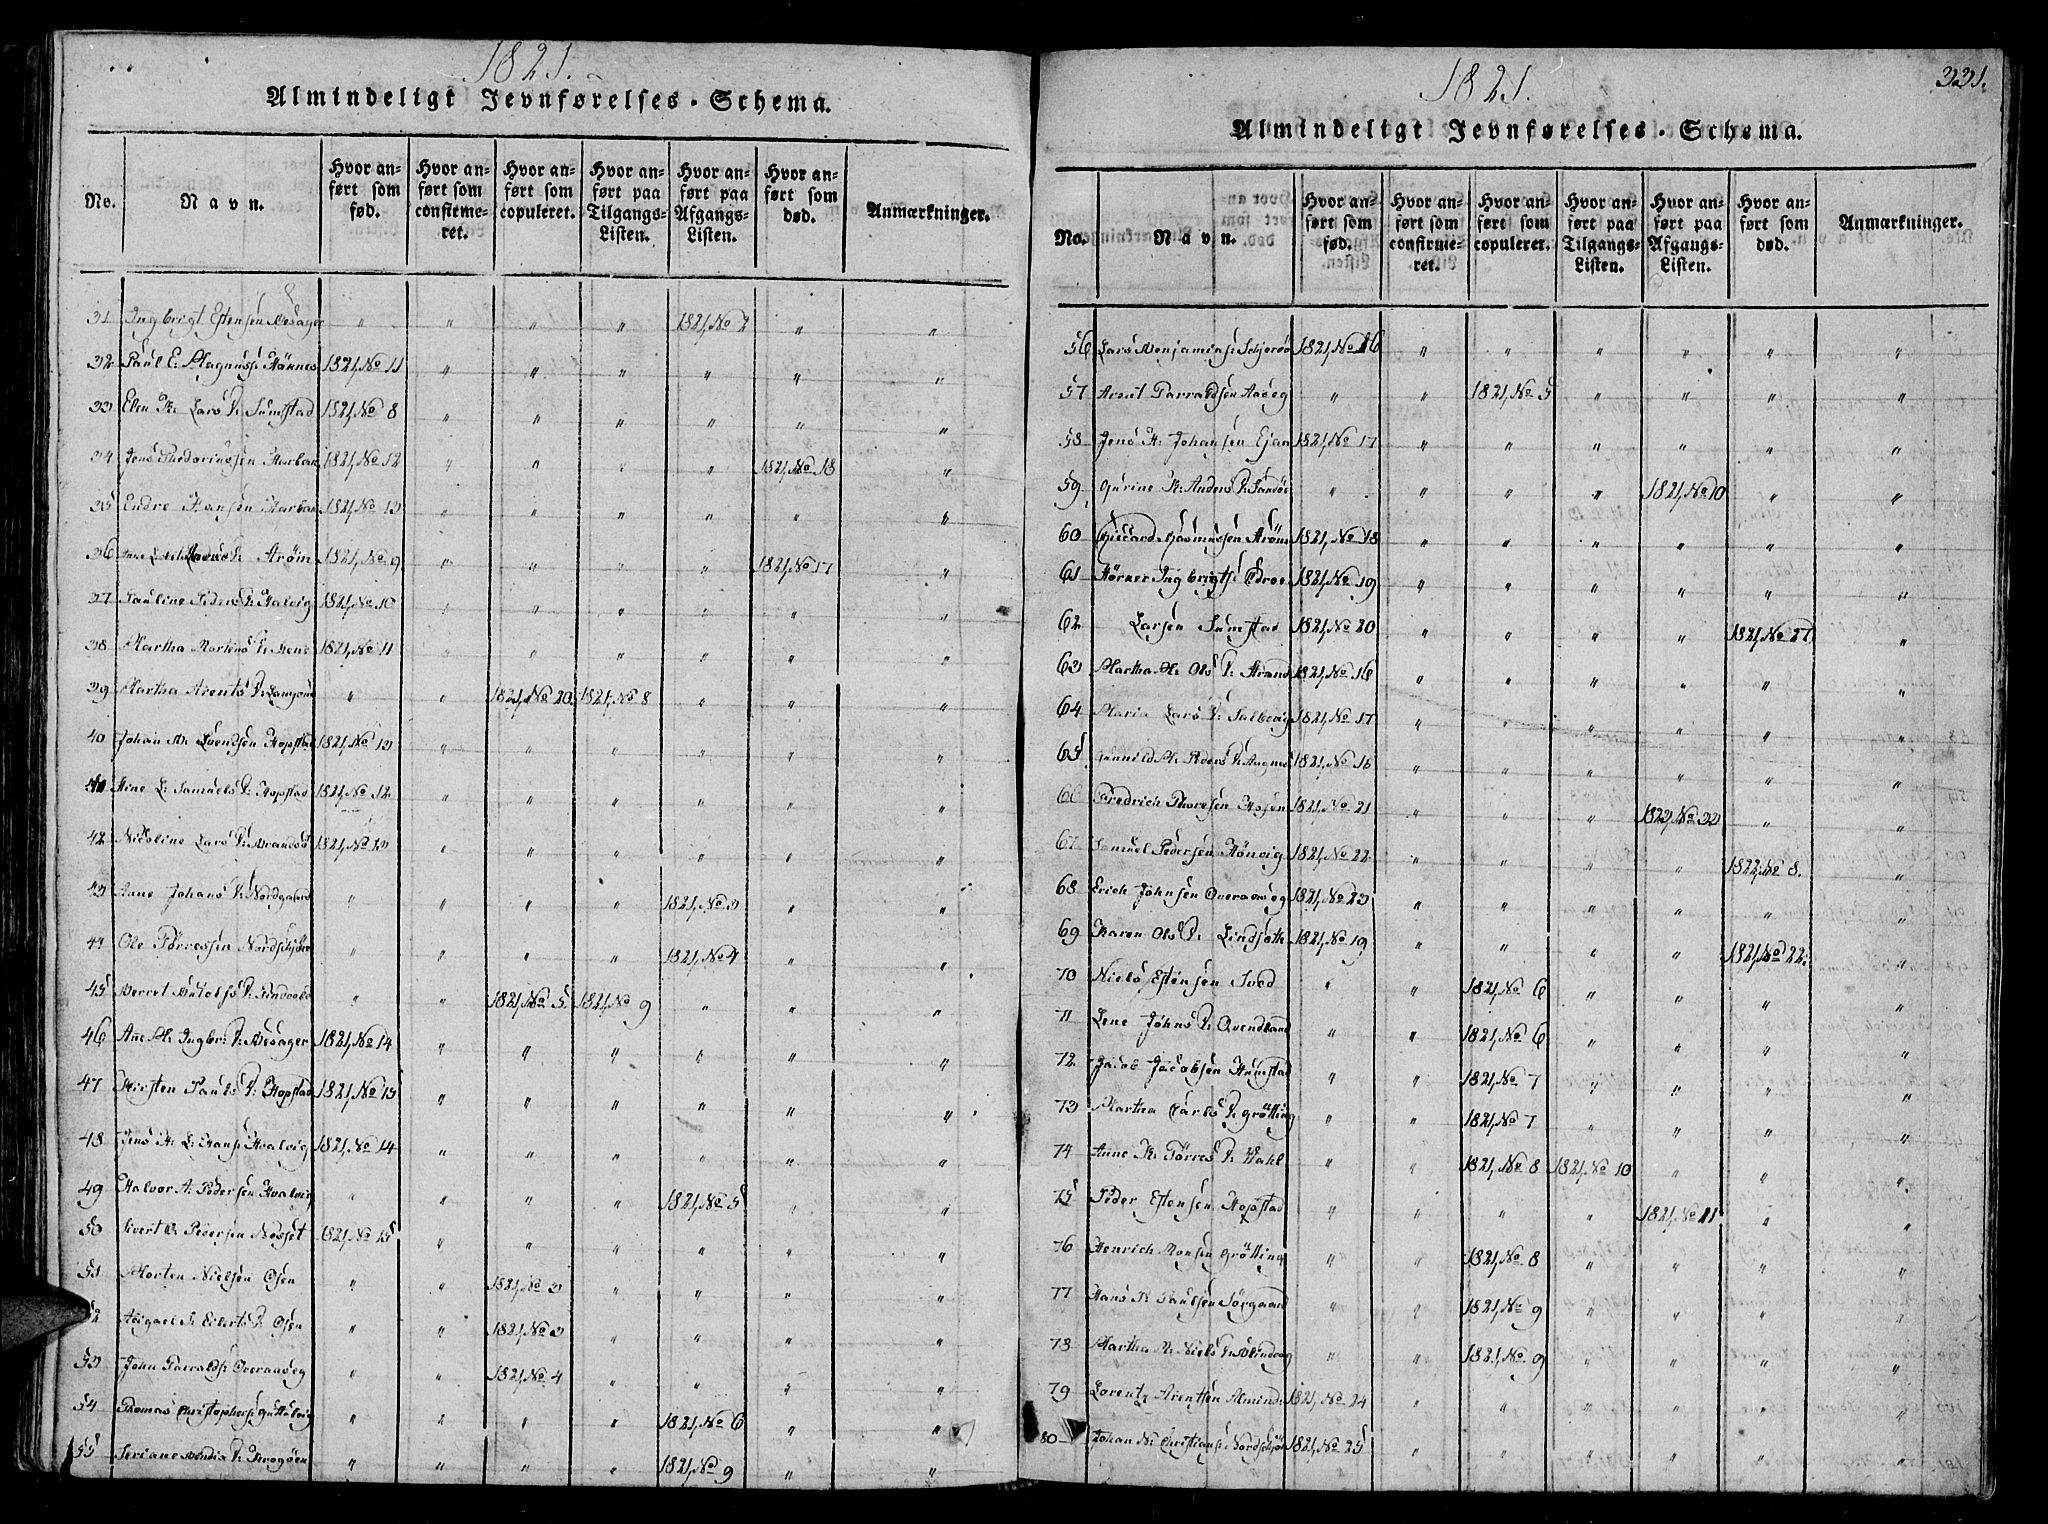 1821.
Almindeligt Jevnførelses-Schema.
No. Navn. Hvor anført som fød. Hvor anført som confirmeret. Hvor anført som copuleret. Hvor anført paa Tilgangs-Listen. Hvor anført paa Afgangs-Listen. Hvor anført som død. Anmærkninger.
31 Ingbrigt Estensen Besager " " " " 1821, No 2 " "
32 Paul E. Magnuss: Hönnes 1821, No 11 " " " " " "
33 Elen K. Lars D: Sumstad 1821, No 8 " " " " " "
34 Jens 1821, No 12 " " " " 1821, No 18 "
35 Endre Hansen Harbak 1821, No 13 " " " " " "
36 Lars D: Strøm 1821, No 9 " " " " 1821, No 17 "
37 Pauline Peders D: Halvig 1821, No 10 " " " " " "
38 Martha Mortens D: 1821, No 11 " " " " " "
39 Martha Arents D: " " 1821, No 20. 1821, No 8 " " "
40 Johan M. Svendsen Hopstad 1821, No 13 " " " " " "
41 Stine L: Samuels D: Hopstad 1821, No 12 " " " " " "
42 Nicoline Lars D: Brandsö 1821, No 13 " " " " " "
43 Anne Johans D: Nordgaard " " " " 1821, No 3 " "
44 Ole Törressen " " " " 1821, No 4 " "
45 Berret D: " " 1821, No 5 1821, No 9 " " "
46 Ane M. Ingbr: D: Besager 1821, No 14 " " " " " "
47 Kirsten Pauls D: Hopstad 1821, No 15 " " " " " "
48 Jens H. L: Hans: Hvalvig 1821, No 14 " " " " " "
49 Halvor A. Pedersen Hvalvig " " " " 1821, No 5 " "
50 Sivert O. Pedersen Nösset 1821, No 15 " " " " " "
51 Morten Nielsen Osen " " 1821, No 3 " " " "
52 Abigael S. Eilerts D: Osen " " 1821, No 3 " " " "
53 John Tarralds: Overaaseg " " 1821, No 4 " " " "
54 Thomas Christophers: " " " " 1821, No 6 " "
55 D: " " " " 1821, No 9 " "
1821.
331.
Almindeligt Jevnførelses-Schema.
No. Navn. Hvor anført som fød. Hvor anført som confirmeret. Hvor anført som copuleret. Hvor anført paa Tilgangs-Listen. Hvor anført paa Afgangs-Listen. Hvor anført som død. Anmærkninger.
56 Lars Benjamins: Schjerøe 1821, No 16 " " " " " "
57 Arent Tarraldsen " " 1821, No 5 " " " "
58 Jens H. Johansen 1821, No 17 " " " " " "
59 Gurine K. Anders D: Sandöe " " " " 1821, No 10 " "
60 Rasmussen Strøm 1821, No 18 " " " " " "
61 Ingbrigts: 1821, No 19 " " " " " "
62 Larsen Sumstad 1821, No 20 " " " " 1821, No 27 "
63 Martha M. Ols D: Strand 1821, No 16 " " " " " "
64 Maria Lars D: 1821, No 17 " " " " " "
65 Gunnild M. Peders D: 1821, No 18 " " " " " "
66 Fredrich Thoresen Hosen 1821, No 21 " " " 1823, No 33 " "
67 Samuel Pedersen Hönvig 1821, No 22 " " " " 1822, No 8. "
68 Erich Johnsen Overaaseg 1821, No 23 " " " " " "
69 Karen Ols D: 1821, No 19 " " " " 1821, No 22. "
70 Niels Estensen Sved " " 1821, No 6 " " " "
71 Lene Johns D: Qvendland " " 1821, No 6 " " " "
72 Jacob Jacobsen Humstad " " 1821, No 7 " " " "
73 Martha Carls D: Grötting " " 1821, No 7 " " " "
74 Anne K. Törres D: Hahl " " 1821, No 8 1821, No 10 " " "
75 Peder Estensen Hopstad " " " " 1821, No 11 " "
76 Henrich Monsen Grötting " " 1821, No 8 " " " "
77 Hans P. Paulsen Sörgaard " " 1821, No 9 " " " "
78 Martha K. Niels D: " " 1821, No 9 " " " "
79 Lorentz Arentsen 1821, No 24 " " " " " "
80 Johan N. Christians: 1821, No 25 " " " " " "